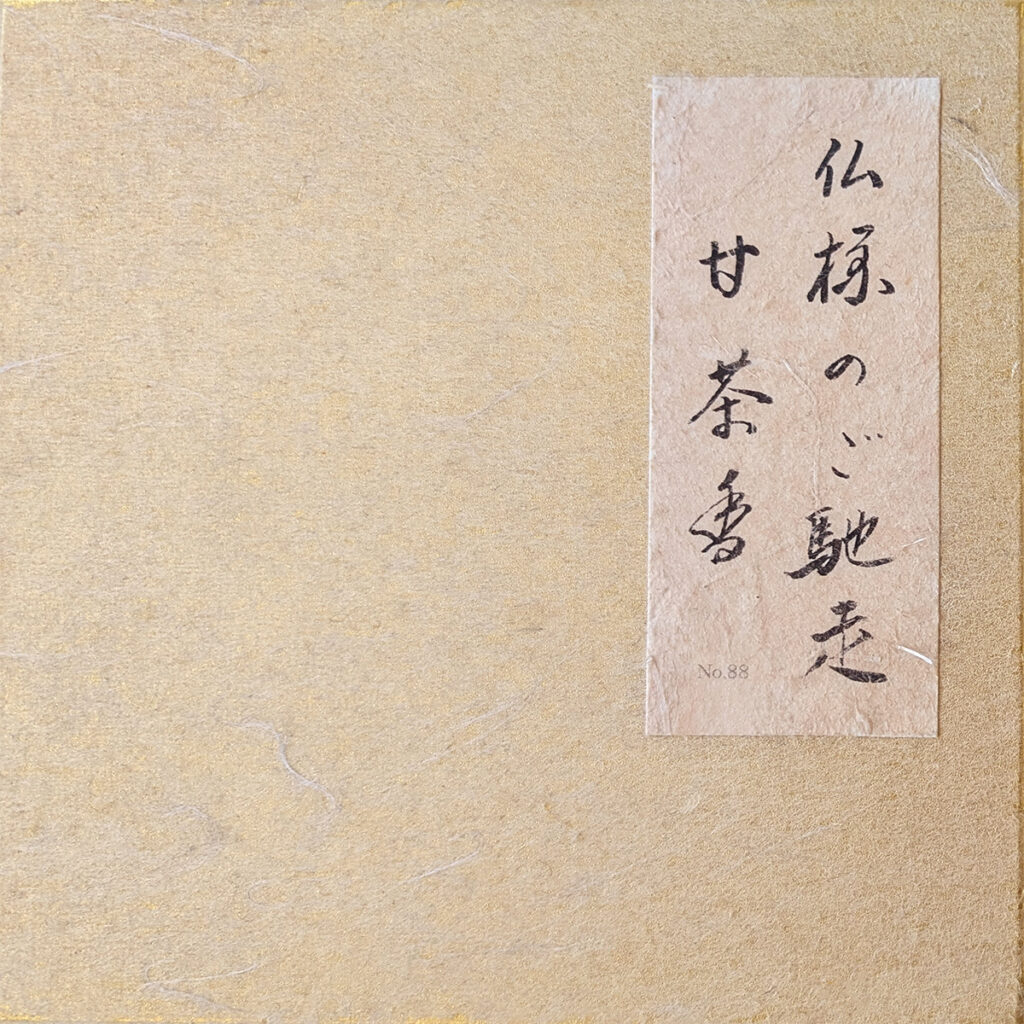 仏様のご馳走
甘茶香
No.88